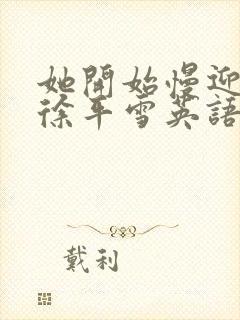 她開始慢迎
徐平雪英語
戴利